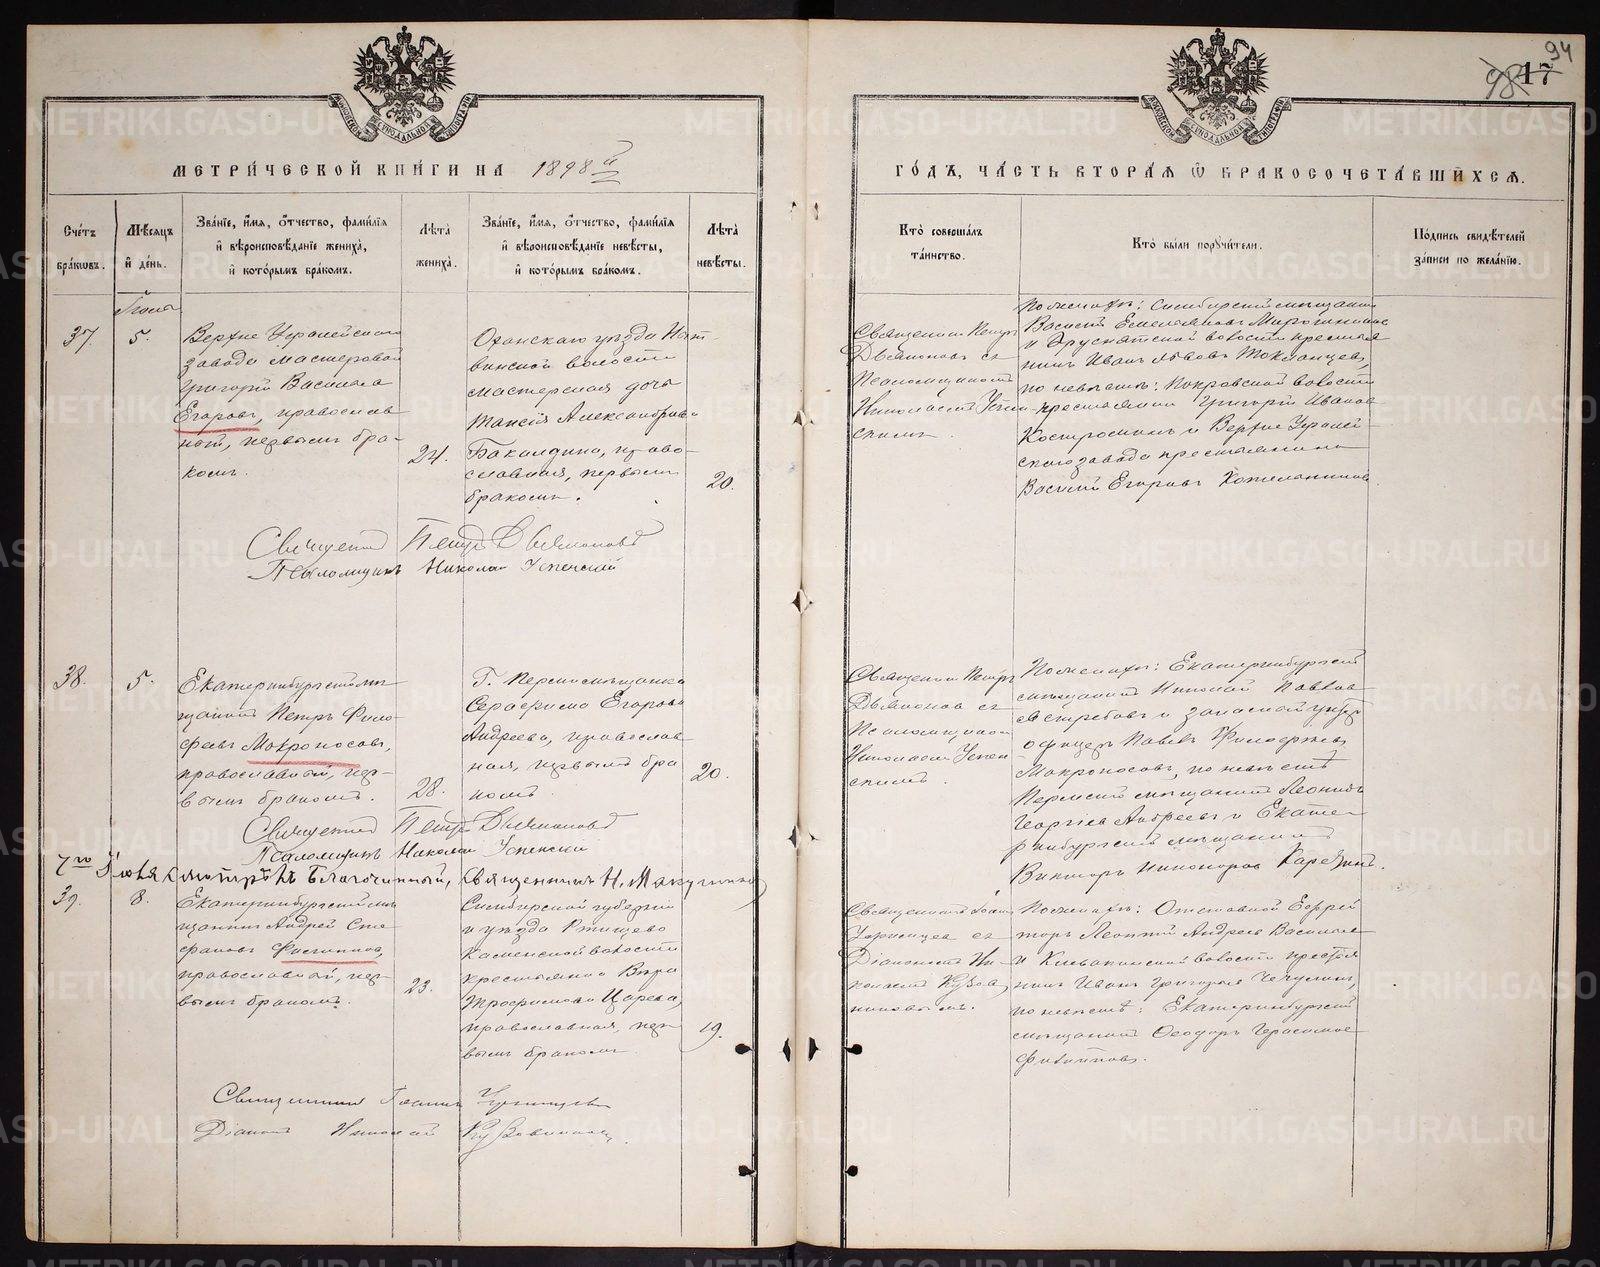 94
17
МЕТРИЧЕСКОЙ КНИГИ НА 1898й
ГОДЪ, ЧАСТЬ ВТОРАЯ Ѡ БРАКОСОЧЕТАВШИХСЯ.
Счетъ браковъ.
Мѣсяцъ и день.
Званіе, имя, отчество, фамилія
и вѣроисповѣданіе жениха,
и которымъ бракомъ.
Лѣта жениха.
Званіе, имя, отчество, фамилія
и вѣроисповѣданіе невѣсты,
и которымъ бракомъ.
Лѣта невѣсты.
Кто совершалъ
таинство.
Кто были поручители.
Подпись свидѣтелей
записи по желанію.
37.
5.
Верхне Уфалейскаго
завода мастеровой
Григорій
Егоровъ, православ
ный, первымъ бра-
комъ.
24.
Оханскаго уѣзда
волости
мастерская дочь
Таисія Александрова
Бакалдина, право-
славная, первымъ
бракомъ.
20.
Священник Петръ
Дьяконовъ съ
Псаломщикомъ
Николаемъ Успен
скимъ.
По женихѣ: Симбирскій мѣщанинъ
Василій Емельяновъ Мирошников
и волости крестья
нинъ Иванъ
по невѣстѣ: Покровской волости
крестьянин Григорій Иванов
Костромин и Верхне Уфалей-
скаго завода крестьянинъ
Василій Егоровъ Кожевников
Священник Петръ Дьяконовъ
Псаломщикъ Николай Успенскій
38.
5.
Екатеринбургскій мѣ
щанинъ Петръ Фило-
феевъ Мокроносовъ,
православный, пер-
вымъ бракомъ.
28.
Г. Перми мѣщанка
Серафима Егорова
Андреева, православ
ная, первымъ бра
комъ.
20.
Священник Петръ
Дьяконовъ съ
Псаломщикомъ
Николаемъ Успен
скимъ.
По женихѣ: Екатеринбургскій
мѣщанинъ Николай Павлов
Ястребовъ и запасной унтер
офицеръ Павелъ Филофеевъ
Мокроносовъ, по невѣстѣ
Пермскій мѣщанинъ Леонидъ
Георгіев Андреевъ и Екате-
ринбургскій мѣщанинъ
Викторъ Никоноров
Священник Петръ Дьяконовъ
Псаломщикъ Николай Успенскій
7го Іюня смотрѣлъ Благочинный, Священникъ Н.
39.
8.
Екатеринбургскій мѣ
щанинъ Андрей Сте
фановъ
православный, пер-
вымъ бракомъ.
23.
Симбирской губерніи
и уѣзда Ртищево
Каменской волости
крестьянка Вѣра
Трофимова Царева,
православная, пер-
вымъ бракомъ.
19.
Священникъ Іоан
съ
Діакономъ Ни-
колаемъ Кузов
никовымъ.
По женихѣ: Отставной Ефрей
торъ Леонтій Андреев Васильев
и волости крестья
нинъ Иванъ Григорьев
по невѣстѣ: Екатеринбургскій
мѣщанинъ Ѳеодоръ Герасимов
Филипповъ.
Священникъ Іоаннъ
Діаконъ Николай Кузовников
METRIKI.GASO-URAL.RU